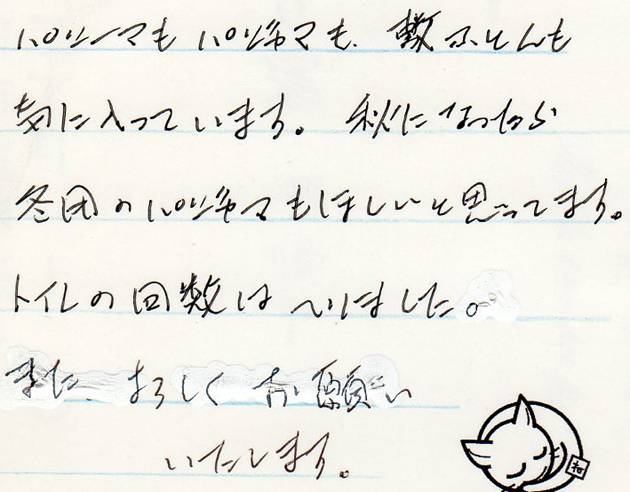 パシーマも パジャマも、敷ふとんも
気に入っています。秋になったら
冬用のパジャマもほしいと思ってます。
トイレの回数は へりました。
また、よろしく お願い
いたします。
和